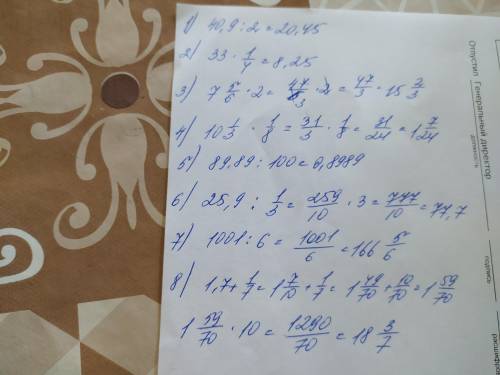 1) 40,9 : 2 = 20,45
2) 33 · 1/4 = 8,25
3) 7 5/6 · 2 = 47/6 3 · 2 = 47/3 = 15 2/3
4) 10 1/3 · 1/8 = 31/3 · 1/8 = 31/24 = 1 7/24
5) 89,89 : 100 = 0,8989
6) 25,9 : 1/3 = 259/10 · 3 = 777/10 = 77,7
7) 1001 : 6 = 1001/6 = 166 5/6
8) 1,7 + 1/7 = 1 7/10 + 1/7 = 1 49/70 + 10/70 = 1 59/70
1 59/70 · 10 = 1290/70 = 18 3/7
Отпустил Генеральный директор
должность
подпись